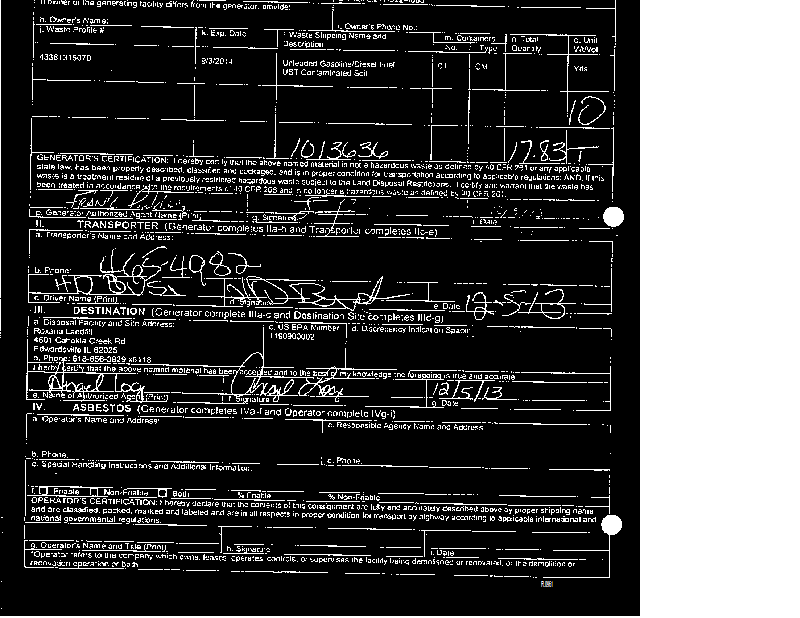 If owner of the generating facility differs from the generator, provide:
h. Owner's Name:
i. Owner's Phone No.:
j. Waste Profile #
k. Exp. Date
l. Waste Shipping Name and Description
m. Containers
No.
Type
n. Total Quantity
o. Unit Wt/Vol
9/3/2014
Unleaded Gasoline/Diesel Fuel
UST Contaminated Soil
01
CM
Yds
10
1013636
17.83 T
GENERATOR'S CERTIFICATION: I hereby certify that the above named material is not a hazardous waste as defined by 40 CFR 261 or any applicable
state law, has been properly described, classified and packaged, and is in proper condition for transportation according to applicable regulations; AND, if this
waste is a treatment residue of a previously restricted hazardous waste subject to the Land Disposal Restrictions, I certify and warrant that the waste has
been treated in accordance with the requirements of 40 CFR 268 and is no longer a hazardous waste as defined by 40 CFR 261.
p. Generator Authorized Agent Name (Print)
q. Signature
r. Date
II. TRANSPORTER (Generator completes IIa-b and Transporter completes IIc-e)
a. Transporter's Name and Address:
4654982
b. Phone:
c. Driver Name (Print)
d. Signature
e. Date
12-5-13
III. DESTINATION (Generator complete IIIa-c and Destination Site completes IIId-g)
a. Disposal Facility and Site Address:
c. US EPA Number
d. Discrepancy Indication Space:
Roxana Landfill
1190900002
4601 Cahokia Creek Rd
Edwardsville IL 62025
b. Phone: 618-656-0829 x6118
I hereby certify that the above named material has been accepted and to the best of my knowledge the foregoing is true and accurate.
12/5/13
e. Name of Authorized Agent (Print)
f. Signature
g. Date
IV. ASBESTOS (Generator completes IVa-f and Operator complete IVg-i)
a. Operator's Name and Address:
c. Responsible Agency Name and Address
b. Phone:
e. Special Handling Instructions and Additional Information:
f. Friable Non-Friable Both % Friable % Non-Friable
OPERATOR'S CERTIFICATION: I hereby declare that the contents of this consignment are fully and accurately described above by proper shipping name
and are classified, packed, marked and labeled and are in all respects in proper condition for transport by highway according to applicable international and
national governmental regulations.
g. Operator's Name and Title (Print)
h. Signature
i. Date
*Operator refers to the company which owns, leases, operates, controls, or supervises the facility being demolished or renovated, or the demolition or
renovation operation or both